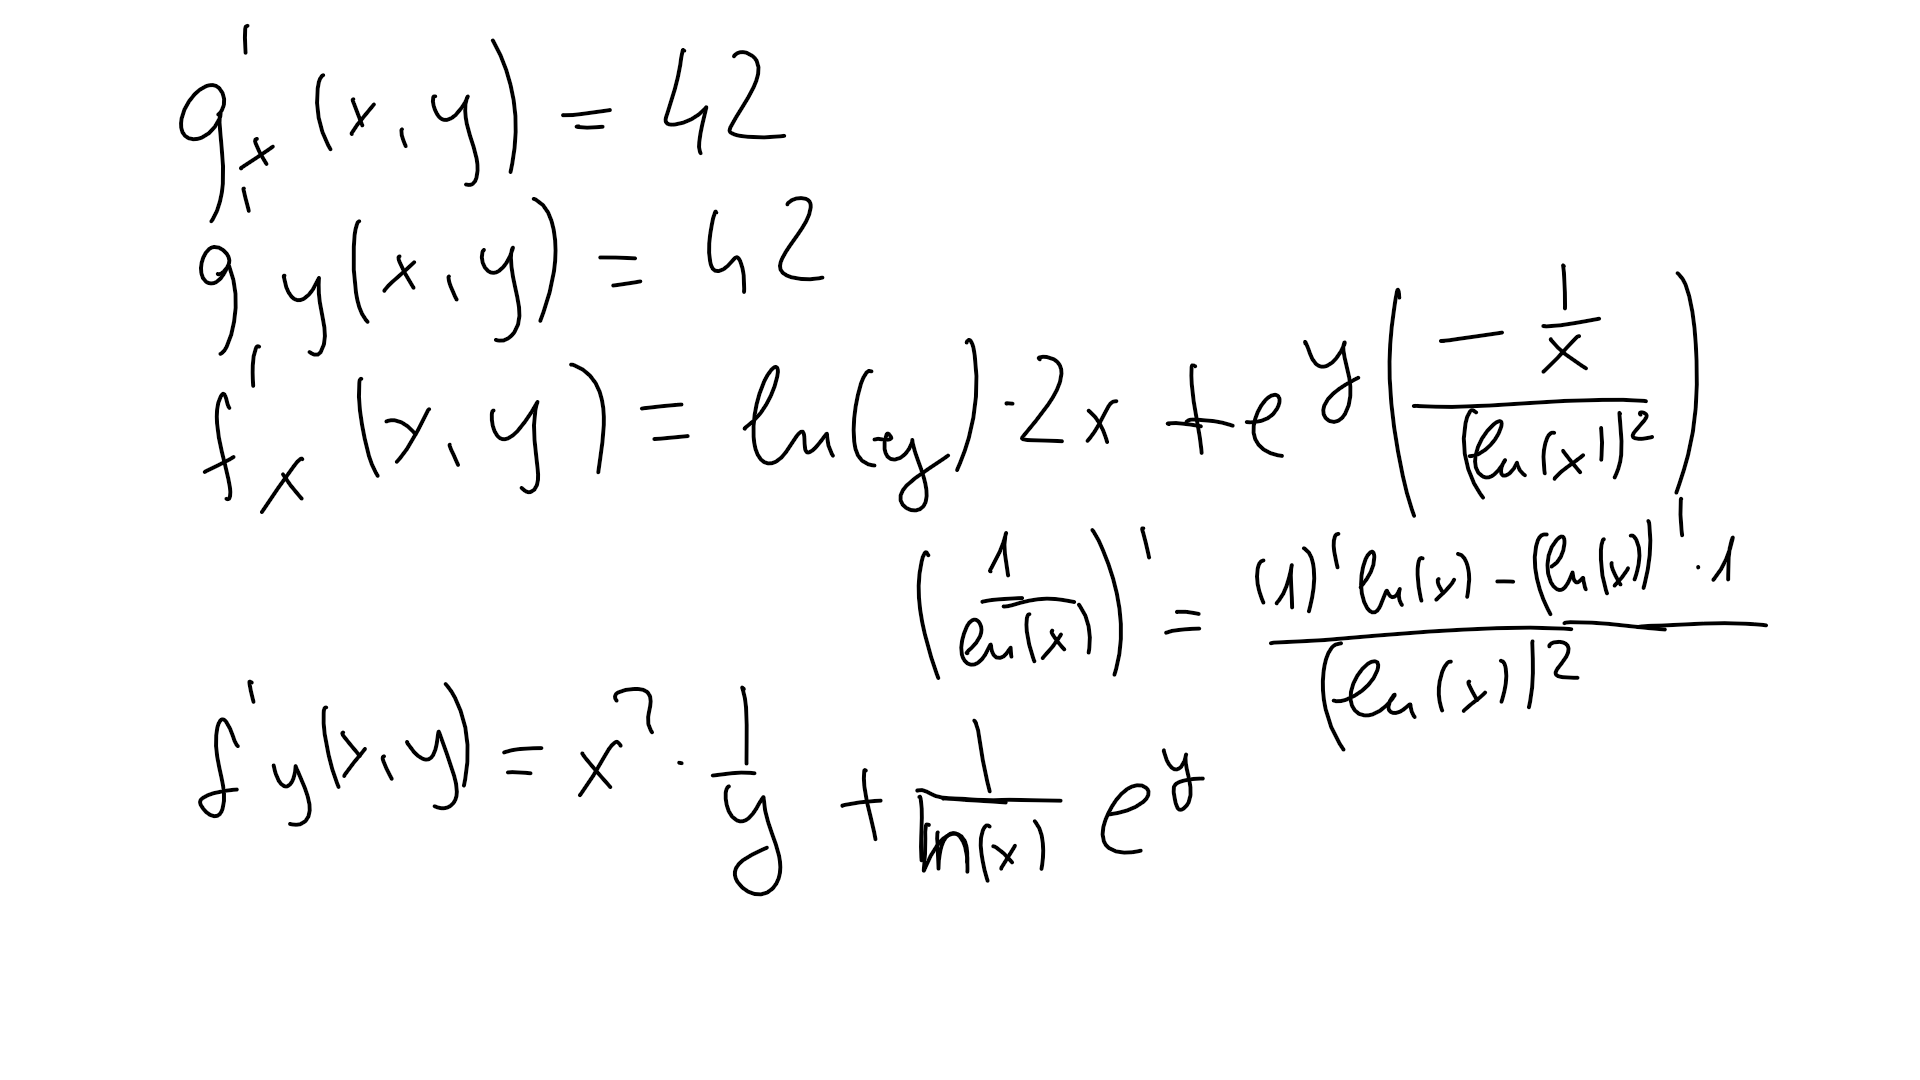 g'ₓ(x,y) = 42
g'y(x,y) = 42
f'ₓ(x,y) = ln(y)·2x + e^y((-1/x)/(ln(x))²)
(1/ln(x))' = ((1)' ln(x) - (ln(x))'·1)/(ln(x))²
f'y(x,y) = x²·1/y + 1/ln(x) e^y